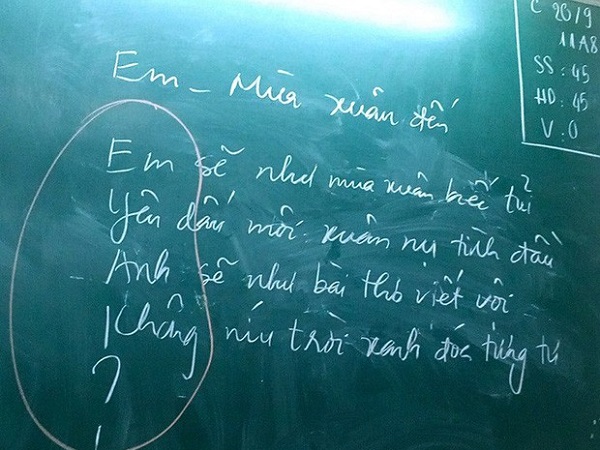 Em - Mùa xuân đến
Em sẽ như mùa xuân
Yêu dấu môi xuân nụ tình đầu
- Anh sẽ như bài thơ viết vội
Không níu trời xanh đóa
?
C 20/9
11A8
SS: 45
HD: 45
V: 0